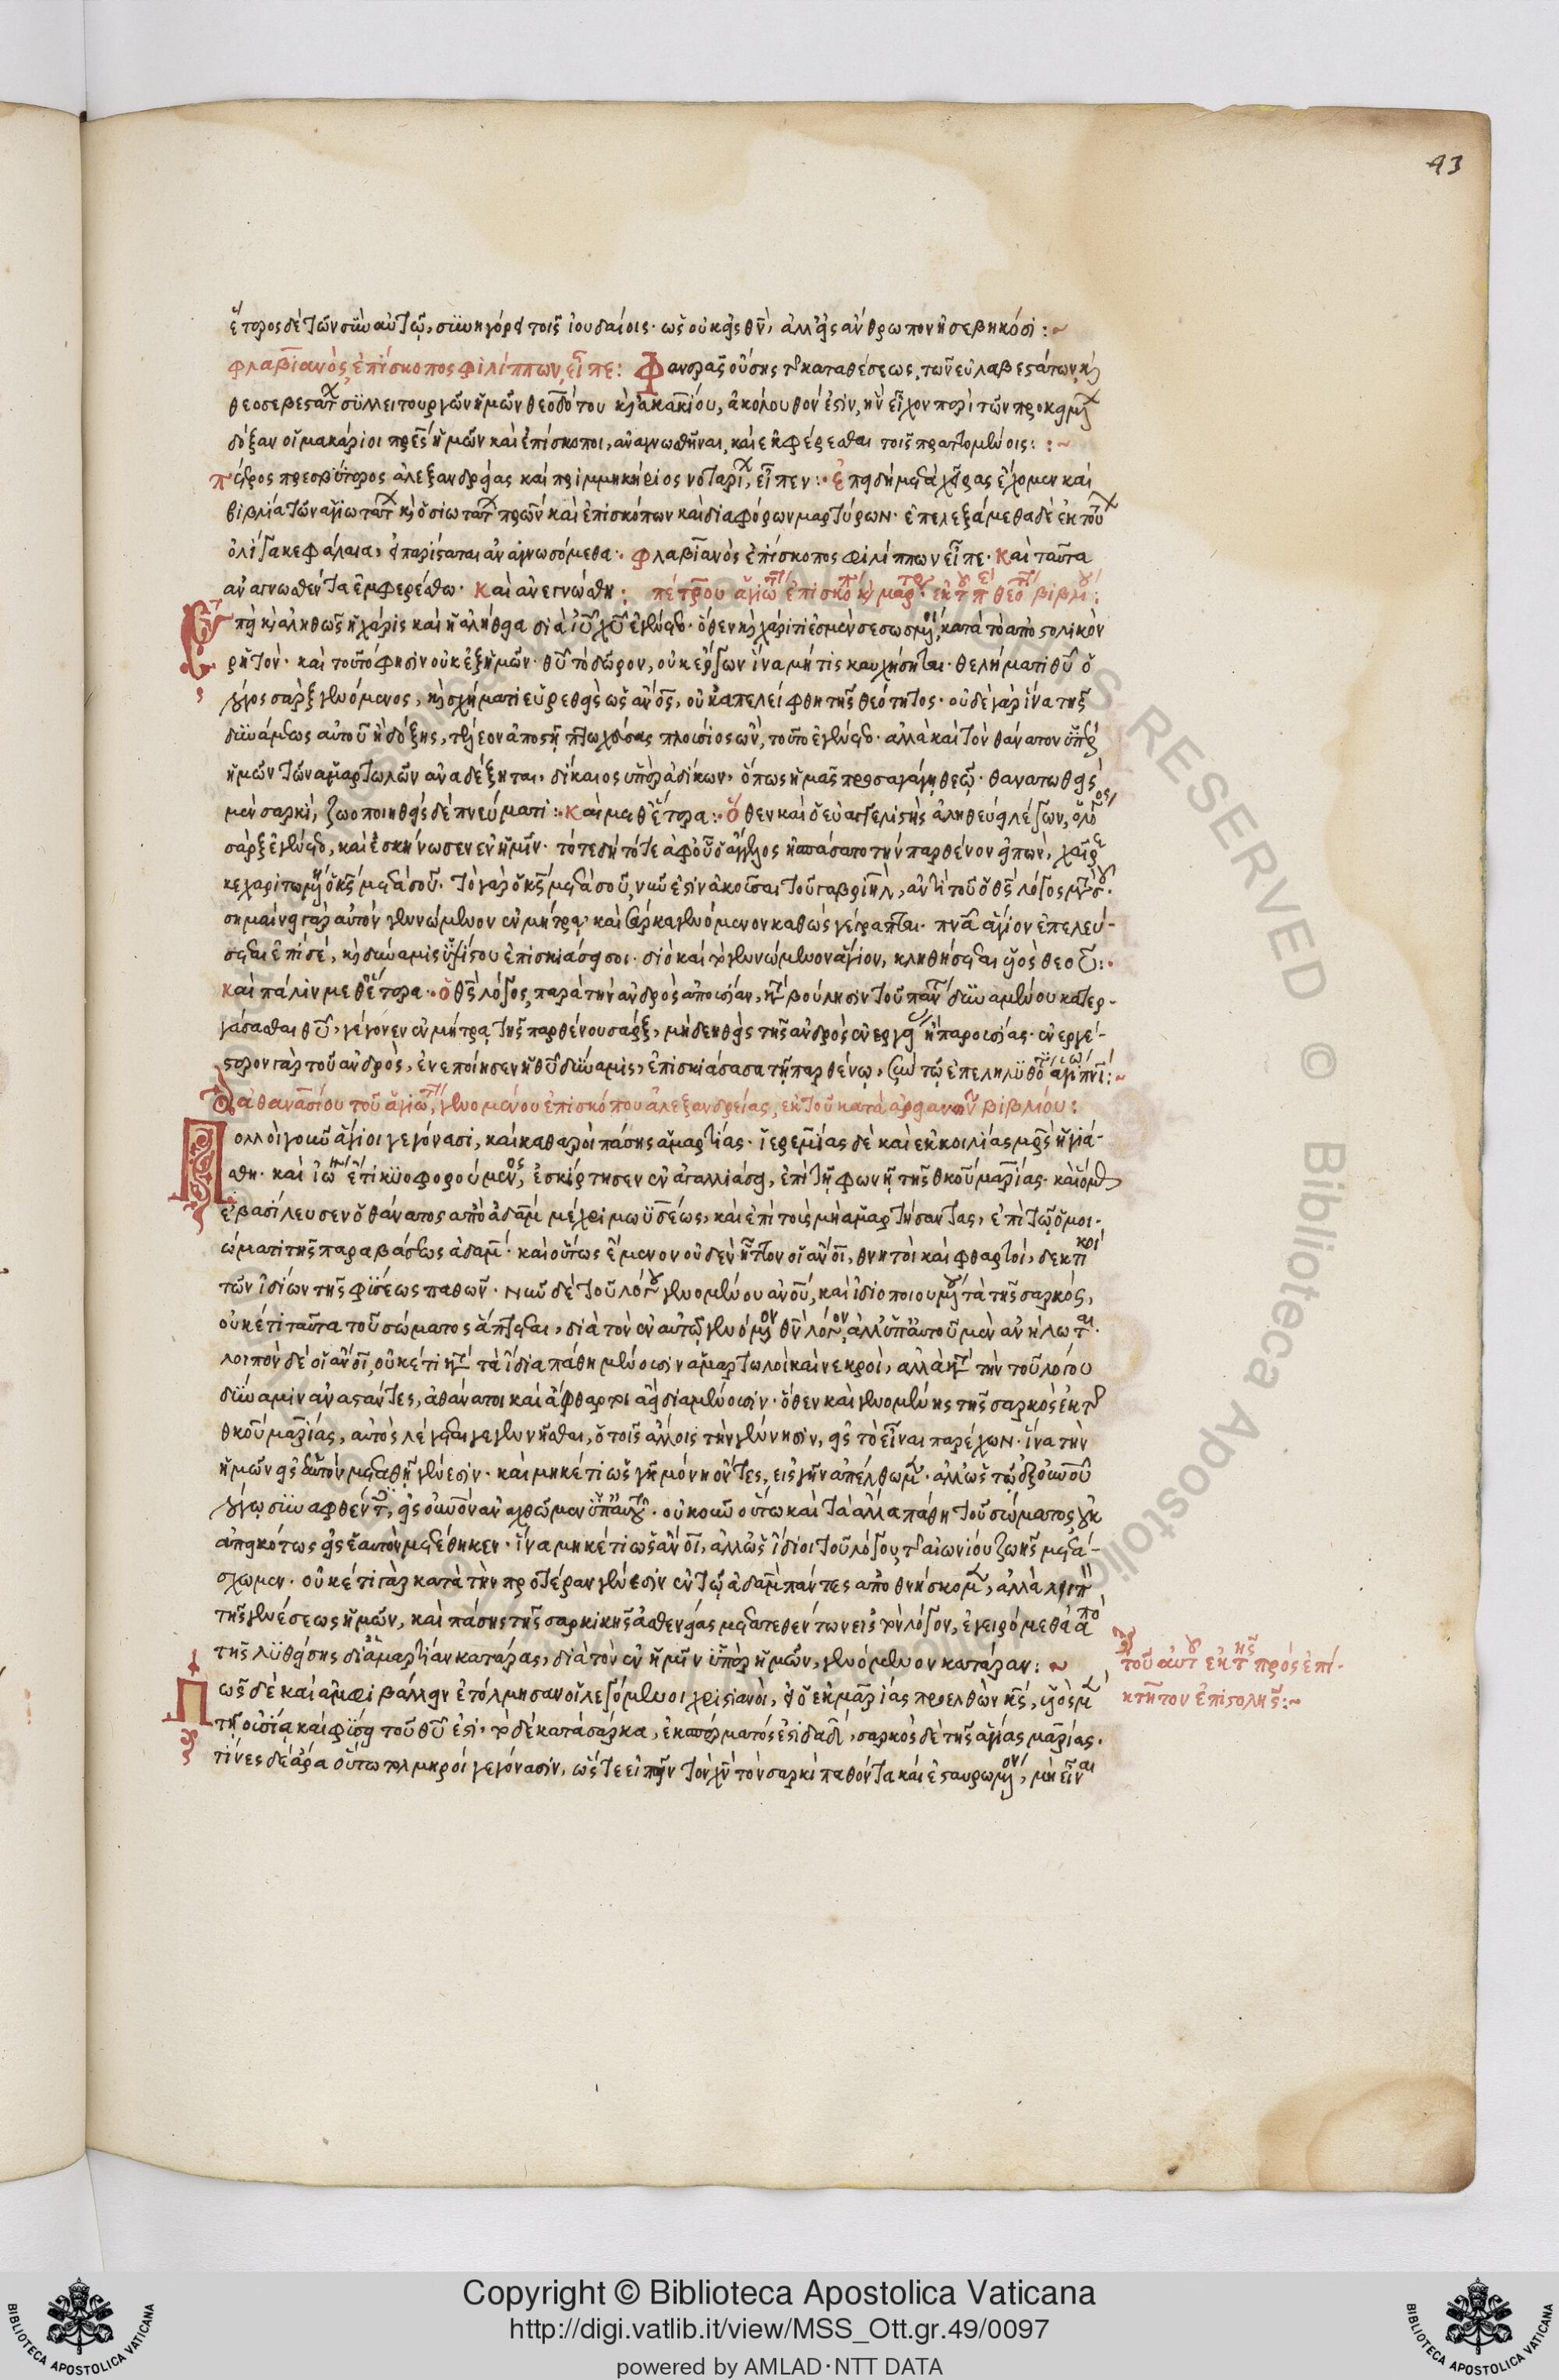 93
ἕτερος δὲ τῶν σὺν αὐτῷ, συνηγόρει τοῖς ἰουδαίοις· ὡς οὐκ εἰς θν, ἀλλ' εἰς ἄνθρωπον ἠσεβηκόσι :~
φλαβιανὸς ἐπίσκοπος φιλίππων, εἶπε : Φανερᾶς οὔσης τῆς καταθέσεως, τῶν εὐλαβεστάτων, καὶ
θεοσεβεστάτ συλλειτουργῶν ἡμῶν θεοδότου καὶ ἀκακίου, ἀκόλουθόν ἐστιν, ἣν εἶχον περὶ τῶν προκειμ
δόξαν οἱ μακάριοι πρες ἡμῶν καὶ ἐπίσκοποι, ἀναγνωσθῆναι, καὶ ἐμφέρεσθαι τοῖς πραττομένοις : :~
πέτρος πρεσβύτερος ἀλεξανδρείας καὶ πριμμικήριος νοταρί, εἶπεν :· ἐπειδὴ μετὰ χεῖρας ἔχομεν καὶ
βιβλία τῶν ἁγιωτάτ καὶ ὁσιωτάτ πρων καὶ ἐπισκόπων καὶ διαφόρων μαρτύρων· ἐπελεξάμεθα δὲ ἐκ τού
ὀλίγα κεφάλαια, εἰ παρίσταται ἀναγνωσόμεθα· φλαβιανὸς ἐπίσκοπος φιλίππων εἶπε· Καὶ ταῦτα
ἀναγνωσθέντα ἐμφερέσθω· Καὶ ἀνεγνώσθη : πέτρου ἁγιω ἐπισκό καὶ μαρ· ἐκ τ π θεο βιβλ :
πει καὶ ἀληθῶς ἡ χάρις καὶ ἡ ἀλήθεια διὰ ιυ χυ ἐγένετο· ὅθεν καὶ χάριτι ἐσμὲν σεσωσμ, κατὰ τὸ ἀποστολικὸν
ῥητόν· καὶ τοῦτό φησιν οὐκ ἐξ ἡμῶν· θυ τὸ δῶρον, οὐκ ἔργων ἵνα μήτις καυχήσηται· θελήματι θυ ὁ
λόγος σὰρξ γενόμενος, καὶ σχήματι εὑρεθεὶς ὡς ανος, οὐκ ἀπελείφθη τῆς θεότητος· οὐδὲ γὰρ ἵνα τῆς
δυνάμεως αὐτοῦ ἢ δόξης, τέλεον ἀποστῇ πτωχεύσας πλούσιος ὤν, τοῦτο ἐγένετο· ἀλλὰ καὶ τὸν θάνατον ὑπὲρ
ἡμῶν τῶν ἁμαρτωλῶν ἀναδέξηται, δίκαιος ὑπὲρ ἀδίκων, ὅπως ἡμᾶς προσαγάγῃ θεῷ· θανατωθεὶς
μὲν σαρκί, ζωοποιηθεὶς δὲ πνεύματι :· Καὶ μεθ' ἕτερα :· ὅθεν καὶ ὁ εὐαγγελιστὴς ἀληθεύει λέγων, ὁ λόγος
σὰρξ ἐγένετο, καὶ ἐσκήνωσεν ἐν ἡμῖν· τότε δὴ τότε ἀφ' οὗ ὁ ἄγγελος ἠσπάσατο τὴν παρθένον εἰπών, χαῖρε
κεχαριτωμένη ὁ κς μετὰ σοῦ. τὸ γὰρ ὁ κς μετὰ σοῦ, νῦν ἐστιν ἀκοῦσαι τοῦ γαβριὴλ, ἀντὶ τοῦ ὁ θς λόγος μετὰ σοῦ.
σημαίνει γὰρ αὐτὸν γεννώμενον ἐν μήτρᾳ καὶ σάρκα γενόμενον καθὼς γέγραπται· πνα ἅγιον ἐπελεύ-
σεται ἐπί σέ, καὶ δύναμις ὑψίστου ἐπισκιάσει σοι· διὸ καὶ τὸ γεννώμενον ἅγιον, κληθήσεται υἱὸς θεοῦ :·
καὶ πάλιν μεθ' ἕτερα· ὁ θς λόγος, παρὰ τὴν ἀνδρὸς ἀπουσίαν, κατὰ βούλησιν τοῦ πάντα δυναμένου κατερ-
γάσασθαι θυ, γέγονεν ἐν μήτρᾳ τῆς παρθένου σάρξ, μὴ δεηθεὶς τῆς ἀνδρὸς ἐνεργείας ἢ παρουσίας· ἐνεργέ-
στερον γὰρ τοῦ ἀνδρὸς, ἐνεποίησεν ἡ θυ δύναμις, ἐπισκιάσασα τῇ παρθένῳ, σὺν τῷ ἐπεληλυθότι ἁγίῳ πνι :~
ἀθανασίου τοῦ ἁγιω, γενομένου ἐπισκόπου ἀλεξανδρείας, ἐκ τοῦ κατὰ ἀρειανῶν βιβλίου :
Πολλοὶ γοῦν ἅγιοι γεγόνασι, καὶ καθαροὶ πάσης ἁμαρτίας· ἱερεμίας δὲ καὶ ἐκ κοιλίας μρς ἡγιά-
σθη· καὶ ἰω ἔτι κυοφορούμενος, ἐσκίρτησεν ἐν ἀγαλλιάσει, ἐπὶ τῇ φωνῇ τῆς θκου μαρίας· καὶ ὅμως
ἐβασίλευσεν ὁ θάνατος ἀπὸ ἀδὰμ μέχρι μωϋσέως, καὶ ἐπὶ τοὺς μὴ ἁμαρτήσαντας, ἐπὶ τῷ ὁμοι-
ώματι τῆς παραβάσεως ἀδάμ· καὶ οὕτως ἔμενον οὐδὲν ἧττον οἱ ανοι, θνητοὶ καὶ φθαρτοί, δεκτικοὶ
τῶν ἰδίων τῆς φύσεως παθῶν· Νῦν δὲ τοῦ λόγου γενομένου ανου, καὶ ἰδιοποιουμένου τὰ τῆς σαρκός,
οὐκέτι ταῦτα τοῦ σώματος ἅπτεται, διὰ τὸν ἐν αὐτῷ γενόμενον θν λόγον, ἀλλ' ὑπ' αὐτοῦ μὲν ἀνήλωται·
λοιπὸν δὲ οἱ ανοι, οὐκέτι κατὰ τὰ ἴδια πάθη μένουσιν ἁμαρτωλοὶ καὶ νεκροὶ, ἀλλὰ κατὰ τὴν τοῦ λόγου
δύναμιν ἀναστάντες, ἀθάνατοι καὶ ἄφθαρτοι ἀεὶ διαμένουσιν· ὅθεν καὶ γενομένης τῆς σαρκὸς ἐκ τῆς
θκου μαρίας, αὐτὸς λέγεται γεγεννῆσθαι, ὁ τοῖς ἄλλοις τὴν γέννησιν, εἰς τὸ εἶναι παρέχων· ἵνα τὴν
ἡμῶν εἰς ἑαυτὸν μεταθῇ γένεσιν· καὶ μηκέτι ὡς γῆ μόνη ὄντες, εἰς γῆν ἀπέλθωμεν· ἀλλ' ὡς τῷ ἐξ ουνου
λόγῳ συναφθέντες, εἰς ουνον ἀναχθῶμεν ὑπ' αὐτοῦ· οὐκοῦν οὕτω καὶ τὰ ἄλλα πάθη τοῦ σώματος οὐκ
ἀπεικότως εἰς ἑαυτὸν μετέθηκεν· ἵνα μηκέτι ὡς ανοι, ἀλλ' ὡς ἴδιοι τοῦ λόγου, τῆς αἰωνίου ζωῆς μετά-
σχωμεν· οὐκέτι γὰρ κατὰ τὴν προτέραν γένεσιν ἐν τῷ ἀδὰμ πάντες ἀποθνήσκομεν, ἀλλὰ λοιπὸν
τῆς γενέσεως ἡμῶν, καὶ πάσης τῆς σαρκικῆς ἀσθενείας μετατεθέντων εἰς τὸν λόγον, ἐγειρόμεθα ἀπὸ
τῆς λυθείσης δι' ἁμαρτίαν κατάρας, διὰ τὸν ἐν ἡμῖν ὑπὲρ ἡμῶν, γενόμενον κατάραν : ~
τοῦ αὐτ ἐκ τῆς πρὸς ἐπί-
κτητον ἐπιστολῆς :~
Πῶς δὲ καὶ ἀμφιβάλλειν ἐτόλμησαν οἱ λεγόμενοι χριστιανοί, εἰ ὁ ἐκ μαρίας προελθὼν κς, υἱὸς μὲν
τῇ οὐσίᾳ καὶ φύσει τοῦ θυ ἐστι, τὸ δὲ κατὰ σάρκα, ἐκ σπέρματός ἐστι δαδ, σαρκὸς δὲ τῆς ἁγίας μαρίας.
τίνες δὲ ἄρα οὕτω τολμηροὶ γεγόνασιν, ὥστε εἰπεῖν τὸν χν τὸν σαρκὶ παθόντα καὶ ἐσταυρωμένον, μὴ εἶναι
Copyright © Biblioteca Apostolica Vaticana
http://digi.vatlib.it/view/MSS_Ott.gr.49/0097
powered by AMLAD·NTT DATA
BIBLIOTECA APOSTOLICA VATICANA
BIBLIOTECA APOSTOLICA VATICANA